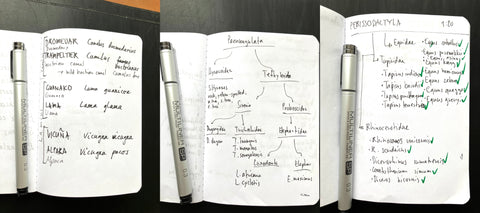 DROMEDAR Camelus dromedarius
TRAMPELTIER Camelus
bactrian camel
→ wild bactrian camel Camelus ferus
GUANAKO Lama guanicoe
Guanaco
LAMA Lama glama
llama
VICUÑA Vicugna vicugna
ALPAKA Vicugna pacos
Alpaca
Paenungulata
Hyracoidea Tethytheria
Sirenia Proboscidea
Dugongidae Trichechidae Elephantidae
D. dugon T. inunguis
T. manatus
T. senegalensis
Loxodonta Elephas
L. africana E. maximus
L. cyclotis
PERISSODACTYLA 9:00
↳ Equidae
↳ Tapiridae
• Tapirus indicus
• Tapirus bairdii
• Tapirus pinchaque
• Tapirus terrestris
• Equus quagga
↳ Rhinocerotidae
• Rhinoceros unicornis
• R. sondaicus
• Dicerorhinus sumatrensis
• Ceratotherium simum
• Diceros bicornis
MULTILINER
0.3